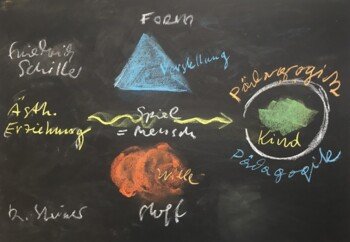 Form
Friedrich
Schiller
Vorstellung
Pädagogik
Ästh.
Erziehung
Spiel
= Mensch
Kind
Pädagogik
Wille
R. Steiner
Stoff